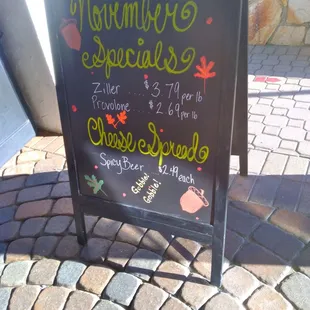 November
Specials
Ziller .... $3.79 per lb
Provolone ... $2.69 per lb
Cheese Spread
Spicy Beer $2.49 each
Gobble
Gobble!